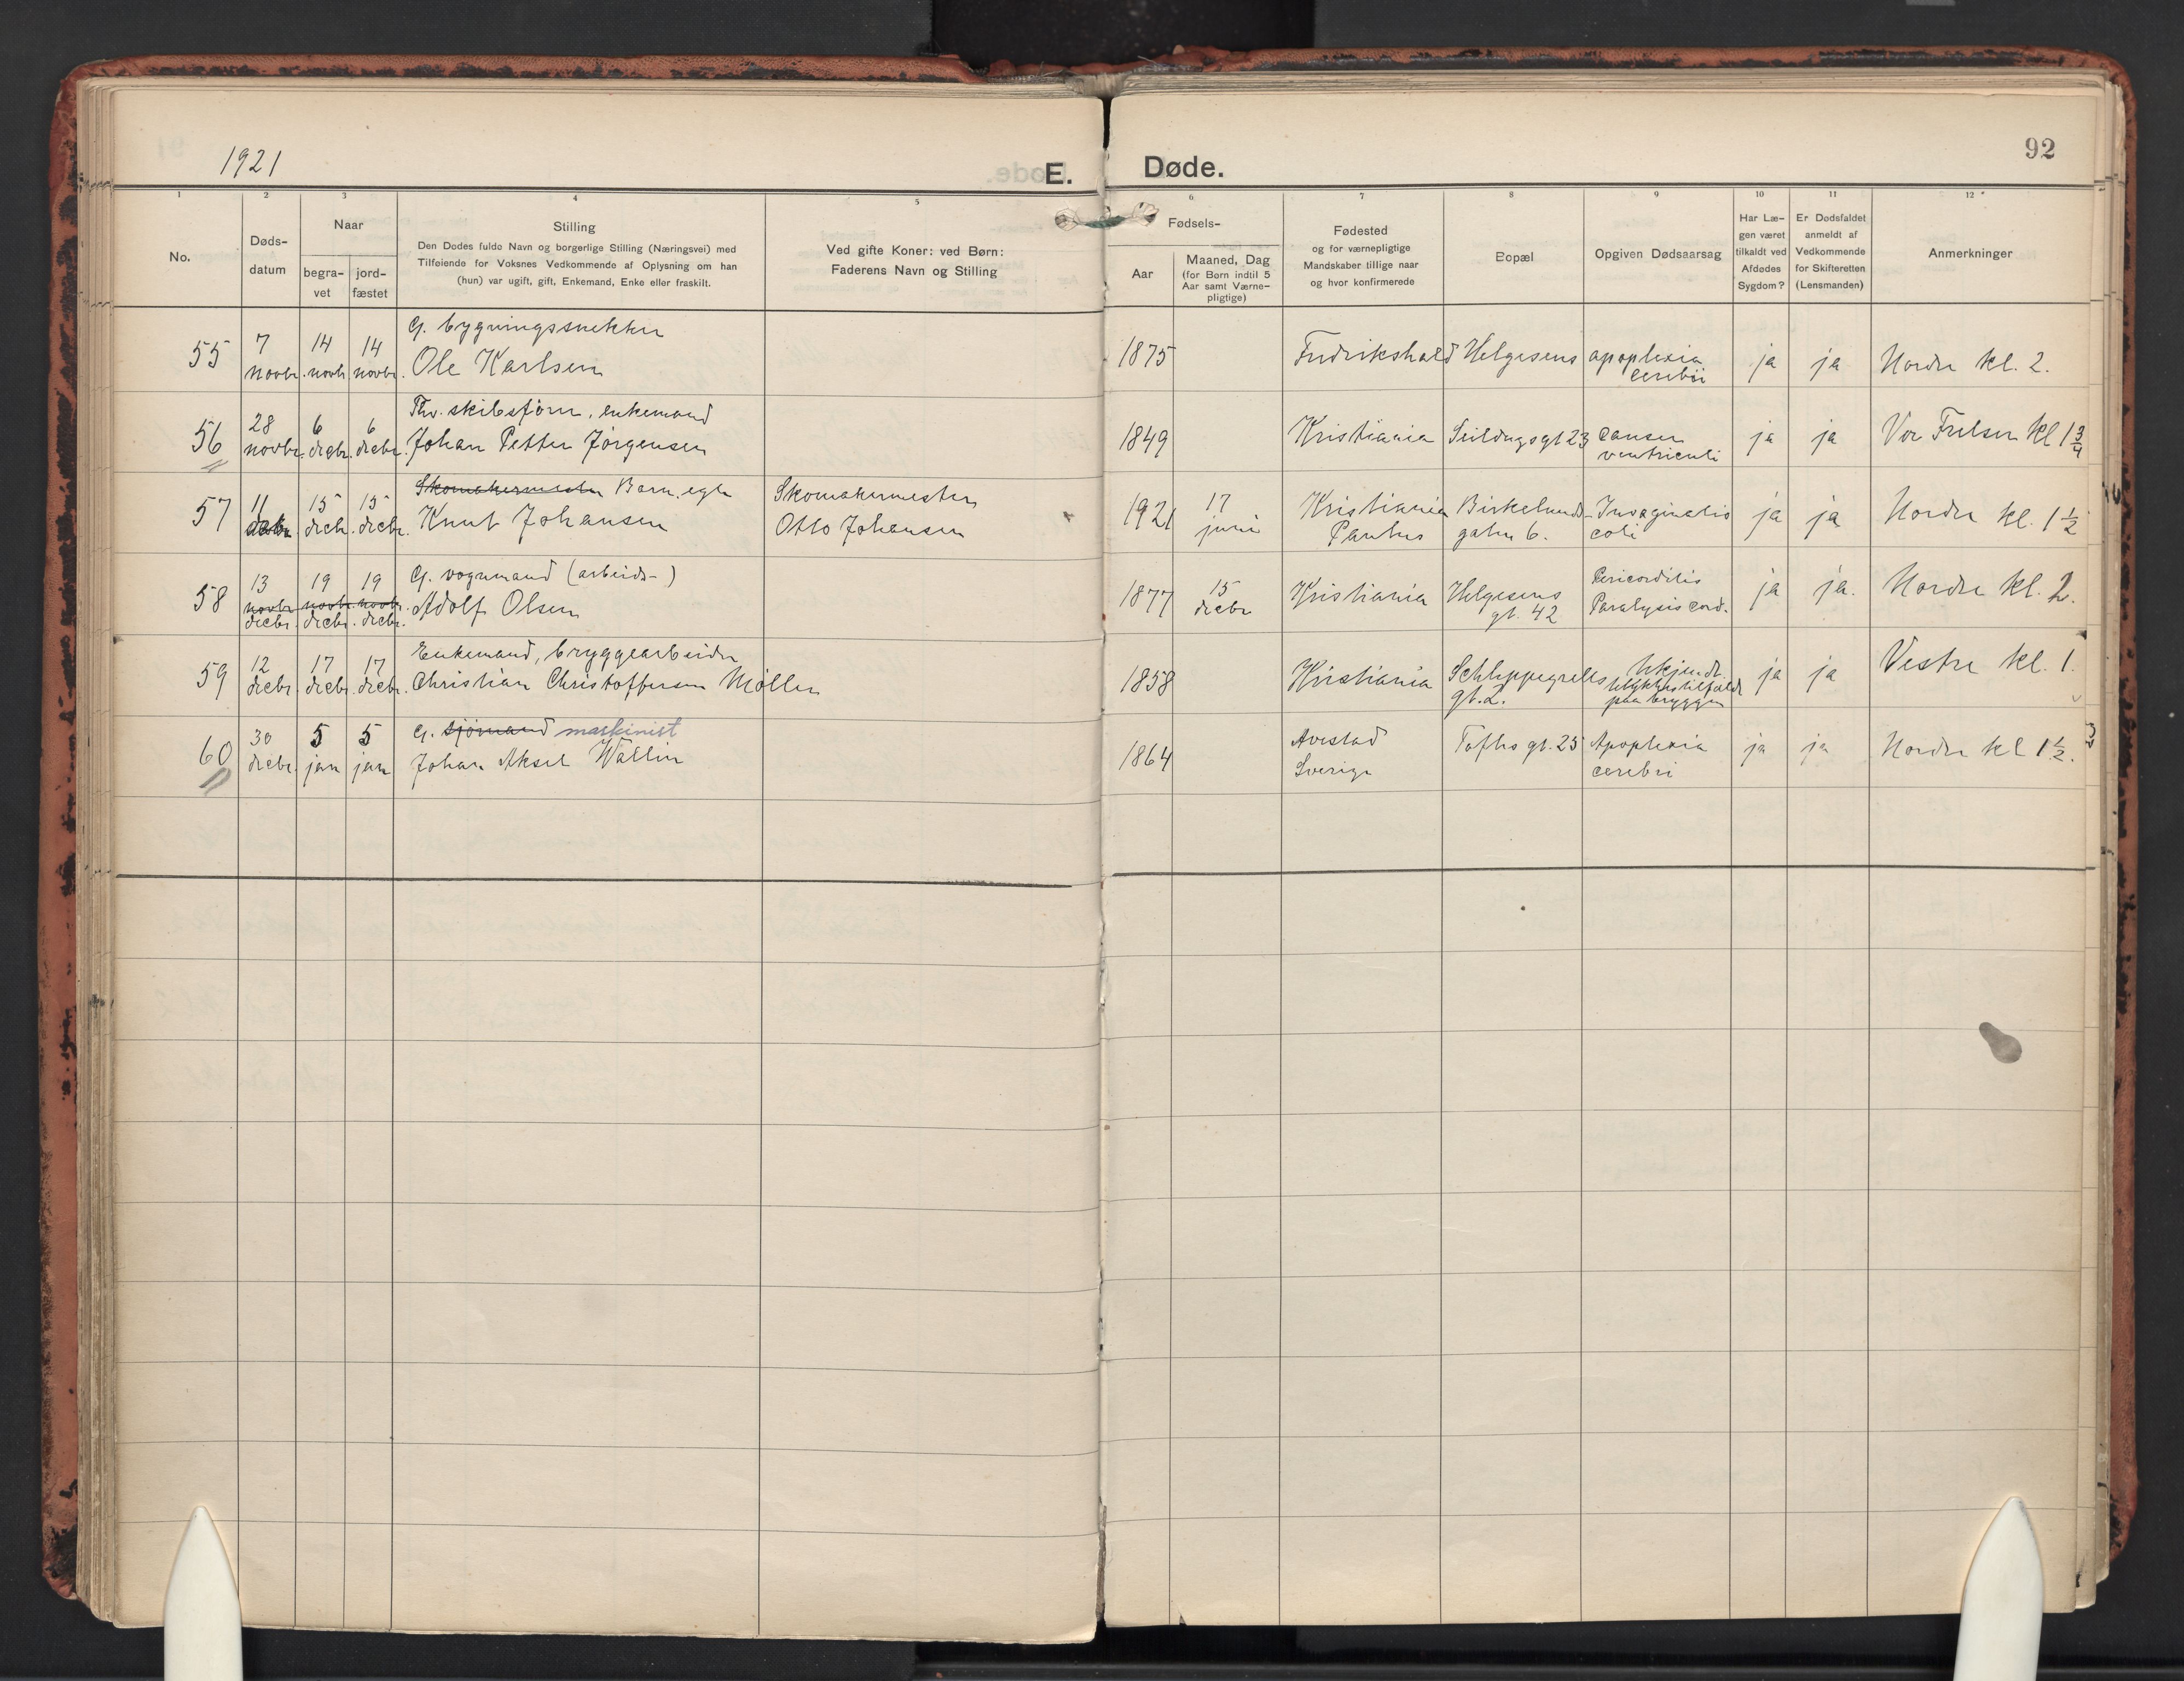 1921
E.
Døde.
92
1 2 3 4 5 6 7 8 9 10 11 12
No.
Døds-
datum
Naar
begra-
vet
jord-
fæstet
Stilling
Den Dødes fulde Navn og borgerlige Stilling (Næringsvei) med
Tilføiende for Voksnes Vedkommende af Oplysning om han
(hun) var ugift, gift, Enkemand, Enke eller fraskilt.
Ved gifte Koner: ved Børn:
Faderens Navn og Stilling
Fødsels-
Aar
Maaned, Dag
(for Børn indtil 5
Aar samt Værne-
pligtige)
Fødested
og for værnepligtige
Mandskaber tillige naar
og hvor konfirmerede
Bopæl
Opgiven Dødsaarsag
Har Læ-
gen været
tilkaldt ved
Afdødes
Sygdom?
Er Dødsfaldet
anmeldt af
Vedkommende
for Skifteretten
(Lensmanden)
Anmerkninger
G. bygningssnekker
55 7 novbr. 14 novbr. 14 novbr. Ole Karlsen 1875 Fredrikshald Helgesens apoplexia ja ja Nordre kl. 2.
cerebri
Fhv. skibsfører, enkemand
56 28 novbr. 6 decbr. 6 decbr. Johan Petter Jörgensen 1849 Kristiania Seildugsgt 23 Cancer ja ja Vor Frelser Kl 1 3/4
ventriculi
Skomakermester Barn, egte Skomakermester
57 11 decbr. 15 decbr. 15 decbr. Knut Johansen Otto Johansen 1921 17 juni Kristiania Birkelunds- Invaginatio ja ja Nordre kl. 1 1/2
Paulus gaten 6. coli
G. vognmand (arbeids-) Pericarditis
58 13 novbr 19 novbr. 19 novbr. Adolf Olsen 1877 15 decbr Kristiania Helgesens Paralysis cord. ja ja. Nordre kl. 2.
decbr. decbr. decbr. gt. 42
Enkemand, bryggearbeider
59 12 decbr. 17 decbr. 17 decbr. Christian Christoffersen Möller 1858 Kristiania Schleppegrells Ukjendt ja ja Vestre kl. 1.
gt. 2. Ulykkestilfælde
paa bryggen
G. sjömand maskinist
60 30 decbr. 5 jan 5 jan Johan Aksel Wallin 1864 Avestad Toftes gt. 25 Apoplexia ja ja Nordre kl 1 1/2.
Sverige cerebri